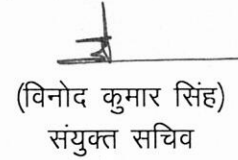 (विनोद कुमार सिंह)
संयुक्त सचिव